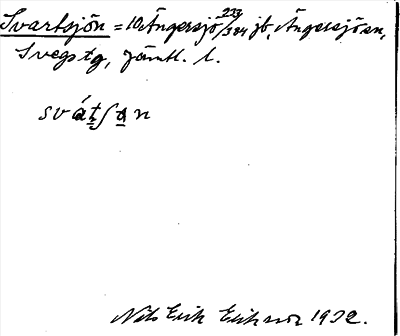 Svartsjön = 10 Ängersjö 223/324 jb, Ängersjö sn,
Svegs tg, Jämtl. l.
svát̲ʃa̲n
Nils Erik Eriksson 1932.